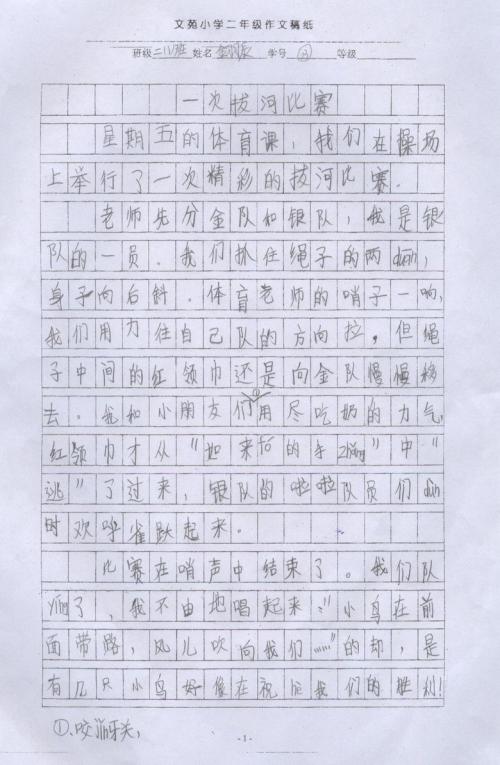 文苑小学二年级作文稿纸
班级 二(1)班 姓名 学号 等级
一次拔河比赛
星期五的体育课，我们在操场
上举行了一次精彩的拔河比赛.
老师先分金队和银队，我是银
队的一员.我们抓住绳子的两duān，
身子向后斜.体育老师的哨子一响，
我们用力往自己队的方向拉，但绳
子中间的红领巾还是向金队慢慢移
去.我和小朋友们①用尽吃奶的力气，
红领巾才从“如来佛的手zhǎng”中“
逃”了过来，银队的啦啦队员们dùn
时欢呼雀跃起来。
比赛在哨声中结束了。我们队
yíng了，我不由地唱起来：“小鸟在前
面带路，风儿吹向我们……”的却，是
有几只小鸟好像在祝贺我们的胜利！
①.咬yá牙关，
-1-